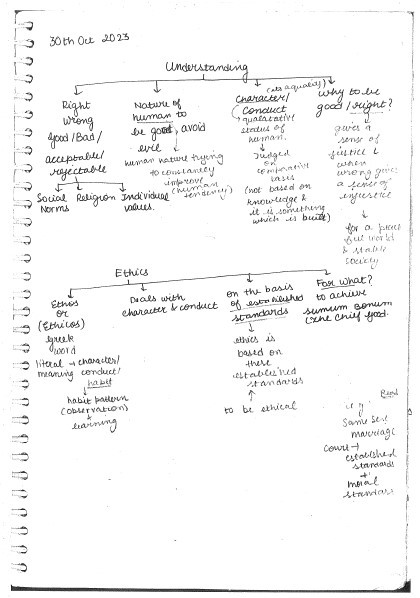 30th Oct 2023
Understanding
Right
wrong
good/Bad/
acceptable/
rejectable
Social Norms
Religion
Individual values.
Nature of
human to
be good, avoid
evil
human nature trying
to constantly
improve
(human
tendency)
(its a quality)
Character/
Conduct
qualitative
status of
human.
Judged
on
comparative
basis
(not based on
knowledge &
it is something
which is built)
why to be
good/right?
gives a
sense of
justice &
when
wrong gives
a sense of
injustice
for a peace
ful world
& stable
society
Ethics
Ethos
or
(Ethicos)
greek
word
literal → character/
meaning conduct/
habit
habit pattern
(observation)
+
learning
Deals with
character & conduct
on the basis
of established
standards
ethics is
based on
these
established
standards
to be ethical
For what?
to achieve
summum bonum
(The Chief good.
e.g
Same Sex
marriage
Court →
established
standards
+
moral
standars